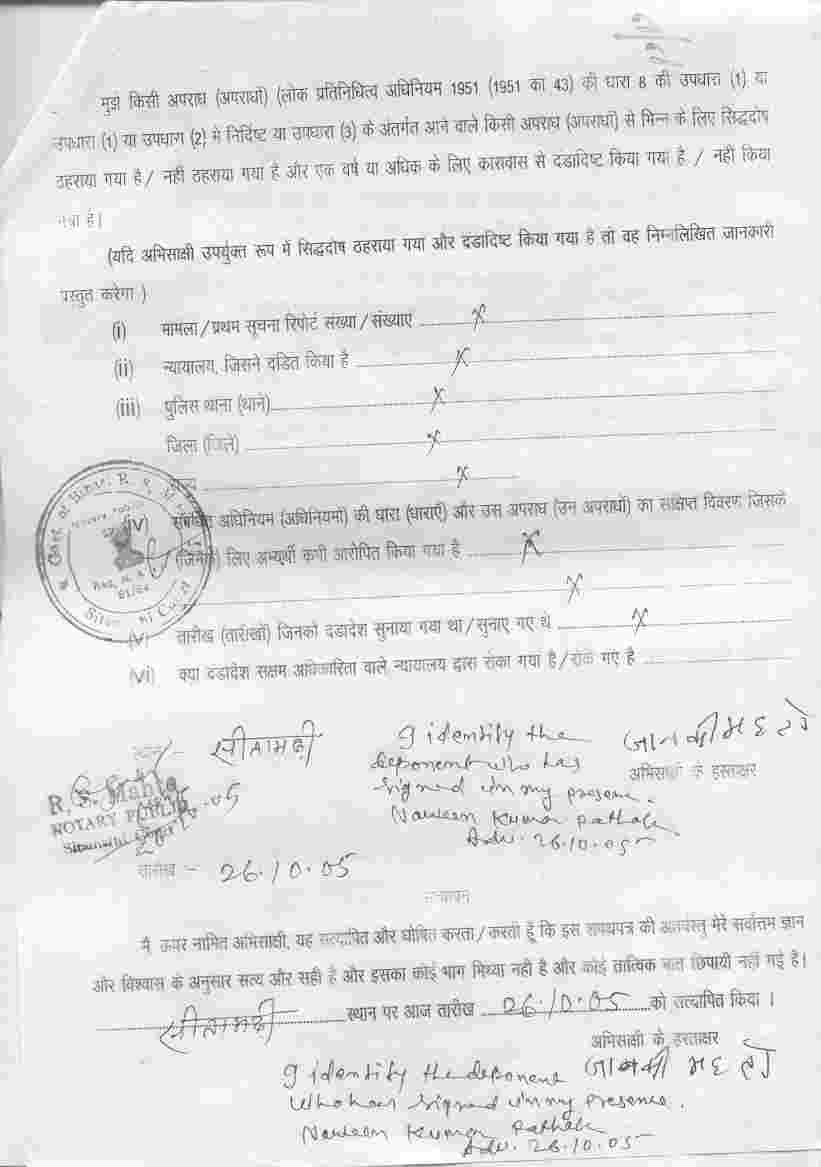 मुझे किसी अपराध (अपराधों) (लोक प्रतिनिधित्व अधिनियम 1951 (1951 का 43) की धारा 8 की उपधारा (1) या
उपधारा (1) या उपधारा (2) में निर्दिष्ट या उपधारा (3) के अंतर्गत आने वाले किसी अपराध (अपराधों) से भिन्न के लिए सिद्धदोष
ठहराया गया है / नहीं ठहराया गया है और एक वर्ष या अधिक के लिए कारावास से दंडादिष्ट किया गया है / नहीं किया
गया है।
(यदि अभिसाक्षी उपर्युक्त रूप में सिद्धदोष ठहराया गया और दंडादिष्ट किया गया है तो वह निम्नलिखित जानकारी
प्रस्तुत करेगा )
(i) मामला / प्रथम सूचना रिपोर्ट संख्या / संख्याएं X
(ii) न्यायालय, जिसने दंडित किया है X
(iii) पुलिस थाना (थाने) X
जिला (जिले) X
X
(iv) संबंधित अधिनियम (अधिनियमों) की धारा (धाराएँ) और उस अपराध (उन अपराधों) का संक्षिप्त विवरण जिसके
(जिनके) लिए अभ्यर्थी कभी आरोपित किया गया है X
X
(v) तारीख (तारीखों) जिनको दंडादेश सुनाया गया था / सुनाए गए थे X
(vi) क्या दंडादेश सक्षम अधिकारिता वाले न्यायालय द्वारा रोका गया है / रोके गए है
Govt. of Bihar
स्थान - सीतामढ़ी
I identify the
deponent who has
signed in my presence.
Naveen Kumar Pathak
Adv. 26.10.05
जानकी महतो
अभिसाक्षी के हस्ताक्षर
NOTARY PUBLIC
तारीख - 26.10.05
सत्यापन
मैं ऊपर नामित अभिसाक्षी, यह सत्यापित और घोषित करता / करती हूँ कि इस शपथपत्र की अंतर्वस्तु मेरे सर्वोत्तम ज्ञान
और विश्वास के अनुसार सत्य और सही है और इसका कोई भाग मिथ्या नहीं है और कोई तात्विक बात छिपायी नहीं गई है।
सीतामढ़ी स्थान पर आज तारीख 26.10.05 को सत्यापित किया ।
अभिसाक्षी के हस्ताक्षर
जानकी महतो
I identify the deponent
who has signed in my presence.
Naveen Kumar Pathak
Adv. 26.10.05